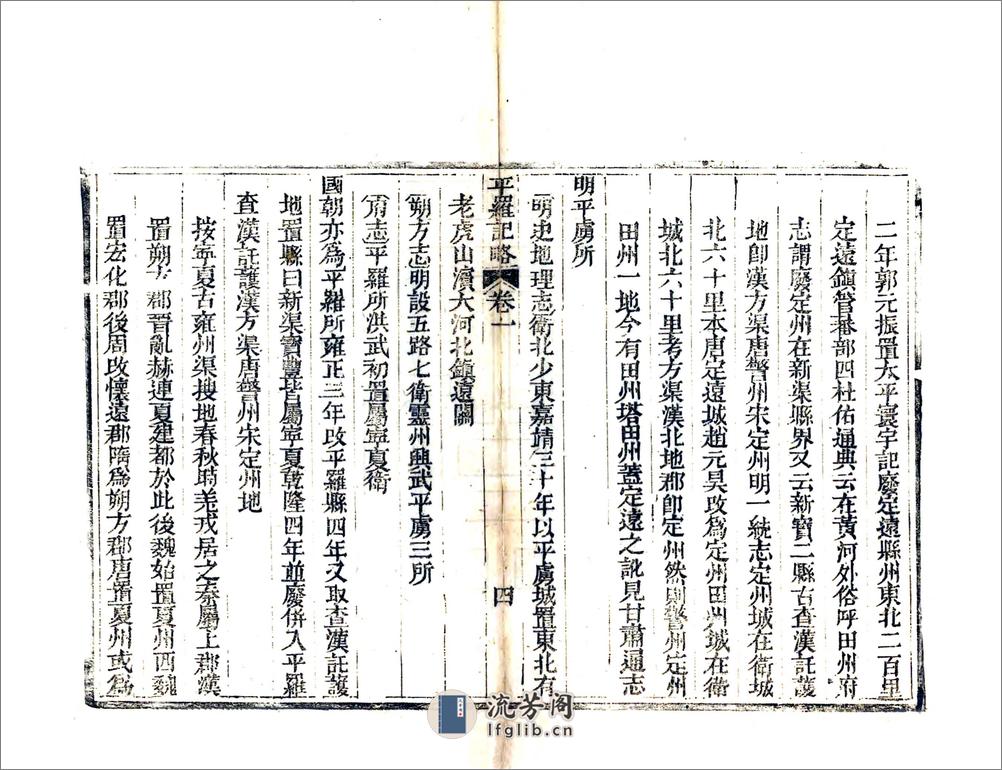 二年郭元振置太平寰宇記廢定遠縣州東北二百里
定遠鎮管蕃部四杜佑通典云在黃河外俗呼田州府
志謂廢定州在新渠縣界又云新寶二縣古查漢託護
地卽漢方渠唐警州宋定州明一統志定州城在衛城
北六十里本唐定遠城趙元昊改爲定州田州城在衛
城北六十里考方渠漢北地郡卽定州然則警州定州
田州一地今有田州塔田州蓋定遠之訛見甘肅通志
明平虜所
明史地理志衛北少東嘉靖三十年以平虜城置東北有
老虎山濱大河北鎮遠關
朔方志明設五路七衛靈州興武平虜三所
甬志平羅所洪武初置屬寧夏衛
國朝亦爲平羅所雍正三年改平羅縣四年又取查漢託護
地置縣曰新渠寶豐皆屬寧夏乾隆四年並廢併入平羅
查漢託護漢方渠唐警州宋定州地
按寧夏古雍州渠搜地春秋時羌戎居之秦屬上郡漢
置朔方郡晉亂赫連夏建都於此後魏始置夏州西魏
置宏化郡後周改懷遠郡隋爲朔方郡唐置夏州或爲
平羅記略 卷一 四
流芳閣
lfglib.cn